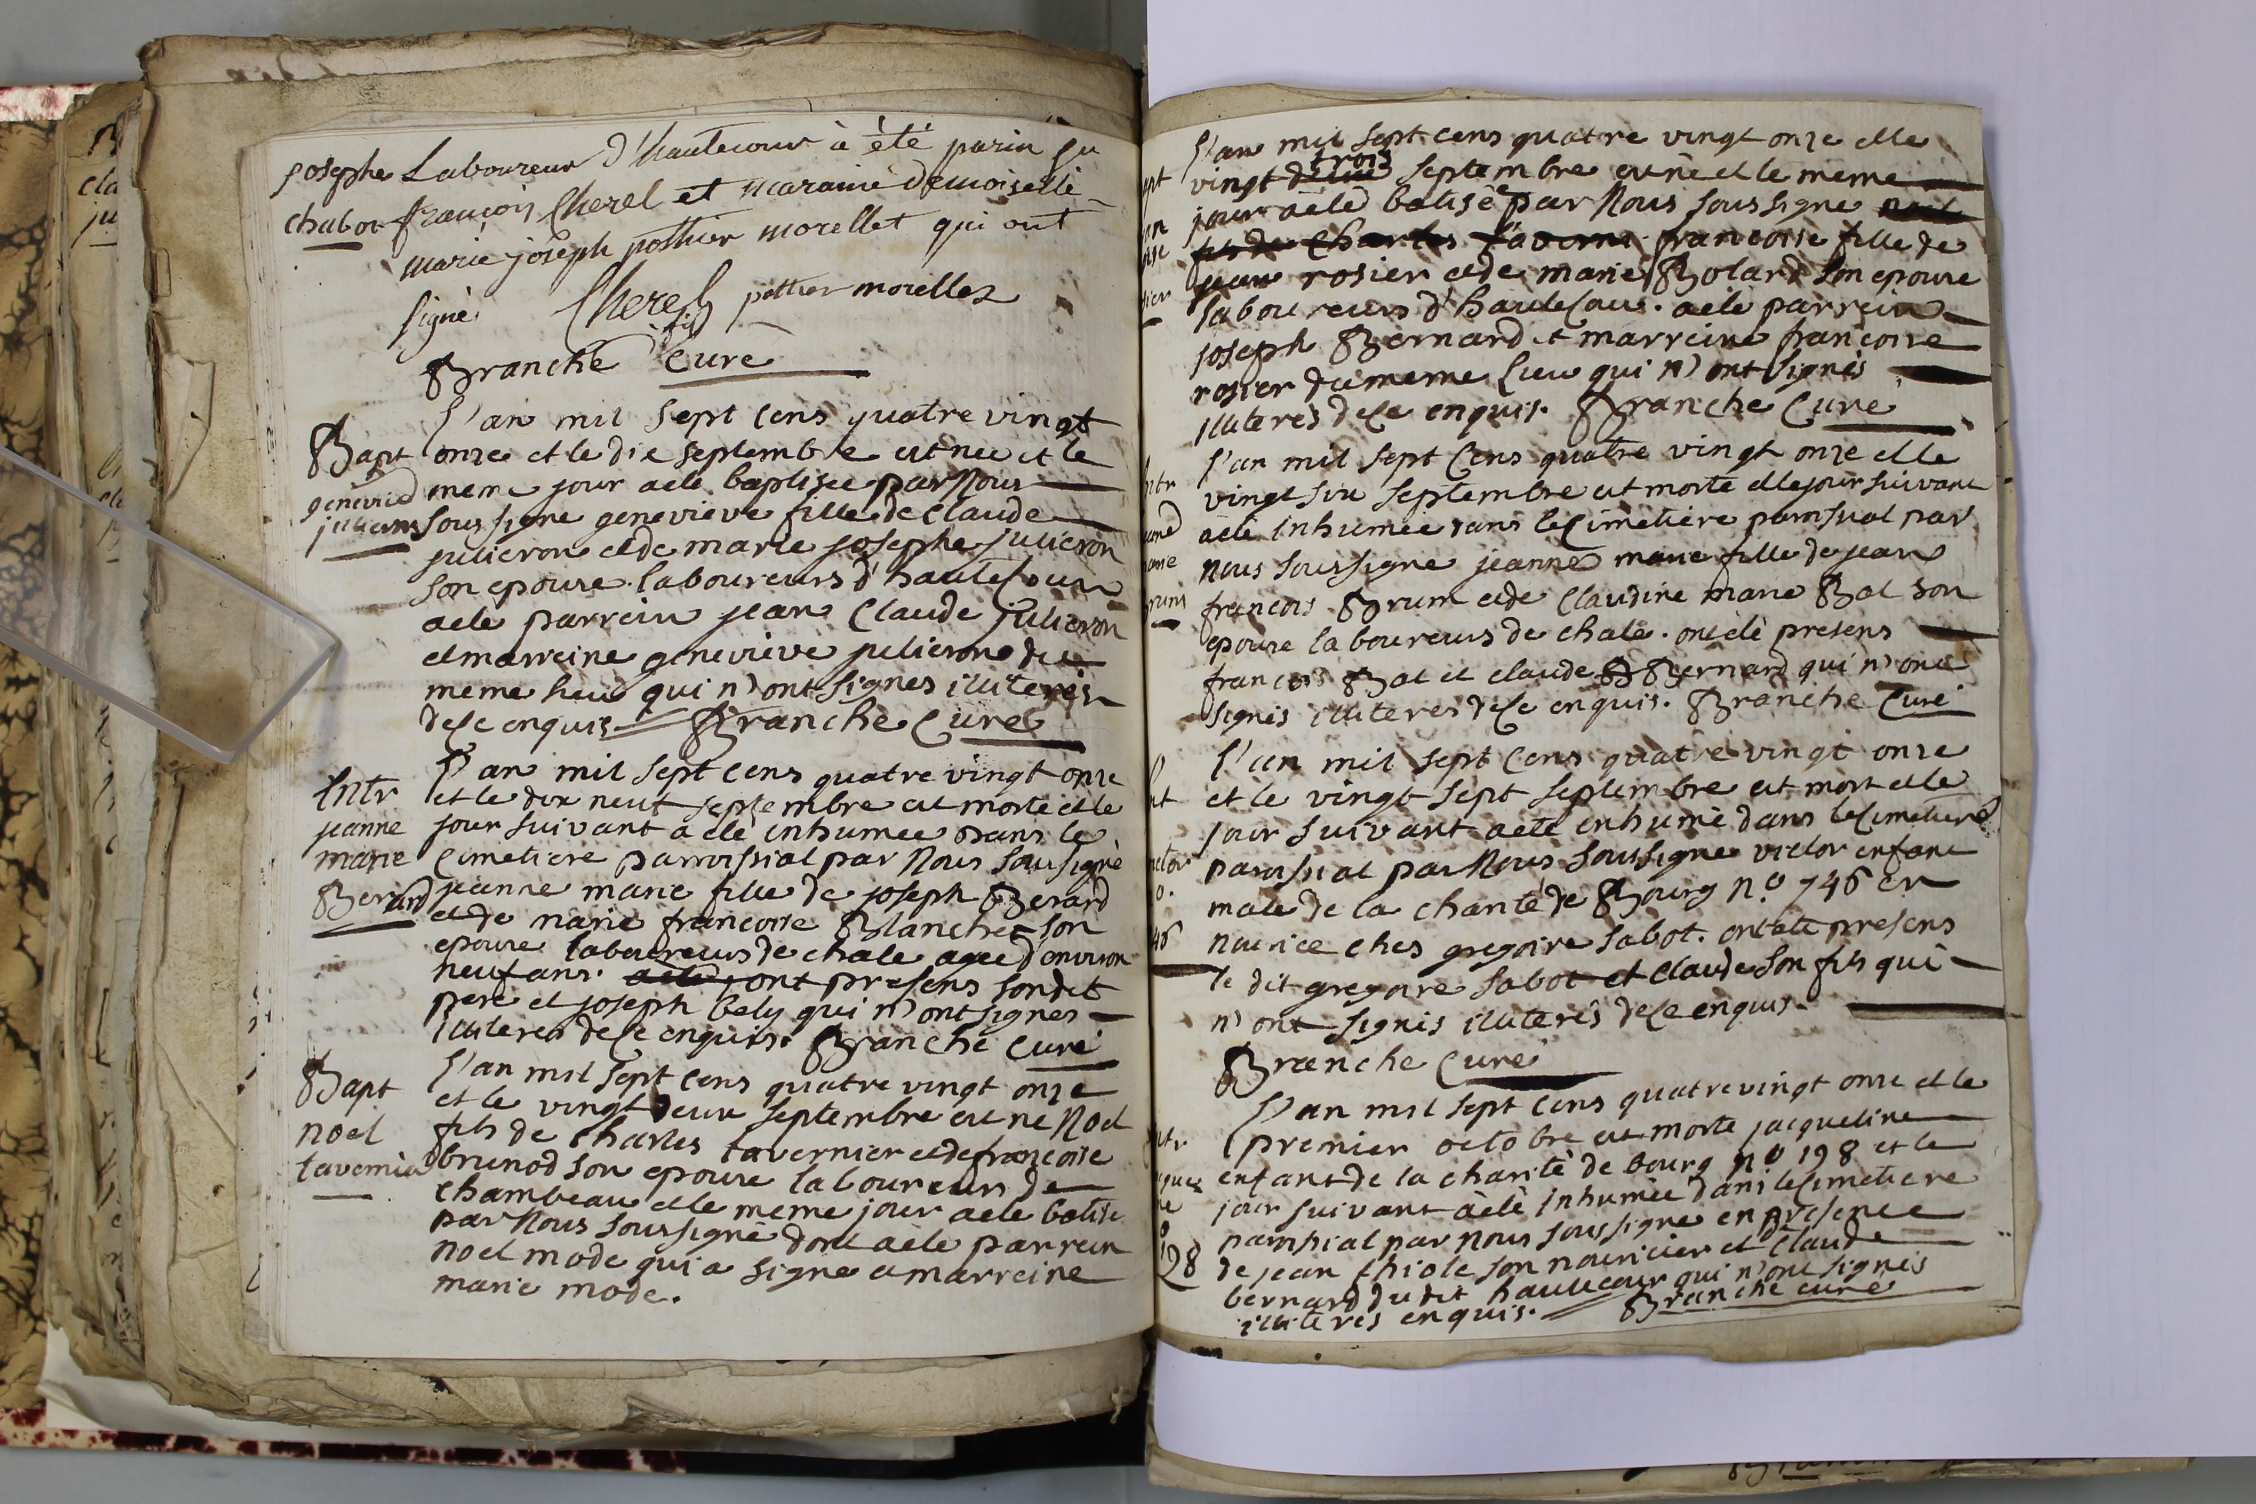 josephe Laboureur d'hautecour à été parin su
chabot françois Cherel et maraine demoiselle
marie joseph pothier morellet qui ont
signé Cherel pottier morellet
fils
Branche Cure
Bapt
genevieve
julieron
L'an mil sept cens quatre vingt
onze et le dix septembre est nee et le
meme jour a ete baptisee par Nous
soussigne genevieve fille de Claude
julieron et de marie josephe julieron
son epouse laboureurs d'hautecour
a ete parrein jean Claude julieron
et marreine genevieve julieron du
meme lieu qui n'ont signes illiterés
de ce enquis. Branche Cure
Entr
jeanne
marie
Berard
L'an mil sept cens quatre vingt onze
et le dix neuf septembre est morte et le
jour suivant a ete inhumee dans le
Cimetiere parroissial par Nous soussigné
jeanne marie fille de joseph Berard
et de marie francoise Blanchet son
epouse laboureurs de chale agee d'environ
neuf ans. a ete ont presens son dit
pere et joseph bely qui n'ont signes
illiterés de ce enquis. Branche Curé
Bapt
noel
tavernier
L'an mil sept cens quatre vingt onze
et le vingt deux septembre est ne Noel
fils de Charles tavernier et de francoise
brunod son epouse laboureurs de
chambeau et le meme jour a ete batisé
par Nous soussigné dont a ete parrein
noel mode qui a signe et marreine
marie mode.
L'an mil sept cens quatre vingt onze et le
trois
vingt deux septembre est né et le meme
jour a eté batisée par Nous soussigne noel
fils de Charles taverni francoise fille de
jean rosier et de marie Bolard son epouse
laboureurs d'hautecour. a ete parrein
joseph Bernard et marreine francoise
rosier du meme lieu qui n'ont signés
illiterés de ce enquis. Branche Cure
L'an mil sept cens quatre vingt onze et le
vingt six septembre est morte et le jour suivant
a eté inhumée dans le Cimetiere paroissial par
nous soussigne jeanne marie fille de jean
francois Brum et de Claudine marie Bal son
epouse laboureurs de chale. ont eté presens
francois Bal et claude B Bernard qui n'ont
signés illiteres de ce enquis. Branche Curé
L'an mil sept cens quatre vingt onze
et le vingt sept septembre est mort et le
jour suivant a ete inhumé dans le Cimetiere
paroissial par Nous soussigne victor enfant
male de la charité de Bourg n.º 746 en
nourice ches gregoire sabot. ont ete presens
le dit gregoire sabot et claude son fils qui
n'ont signés illiterés de ce enquis.
Branche Curé
L'an mil sept cens quatre vingt onze et le
premier octobre est morte jacqueline
enfant de la charité de bourg nº 198 et le
jour suivant a été inhumée dans le Cimetiere
paroissial par nous soussigne en presence
de jean thiole son nouricier et Claude
bernard du dit hautecour qui n'ont signés
illiterés enquis. Branche curé